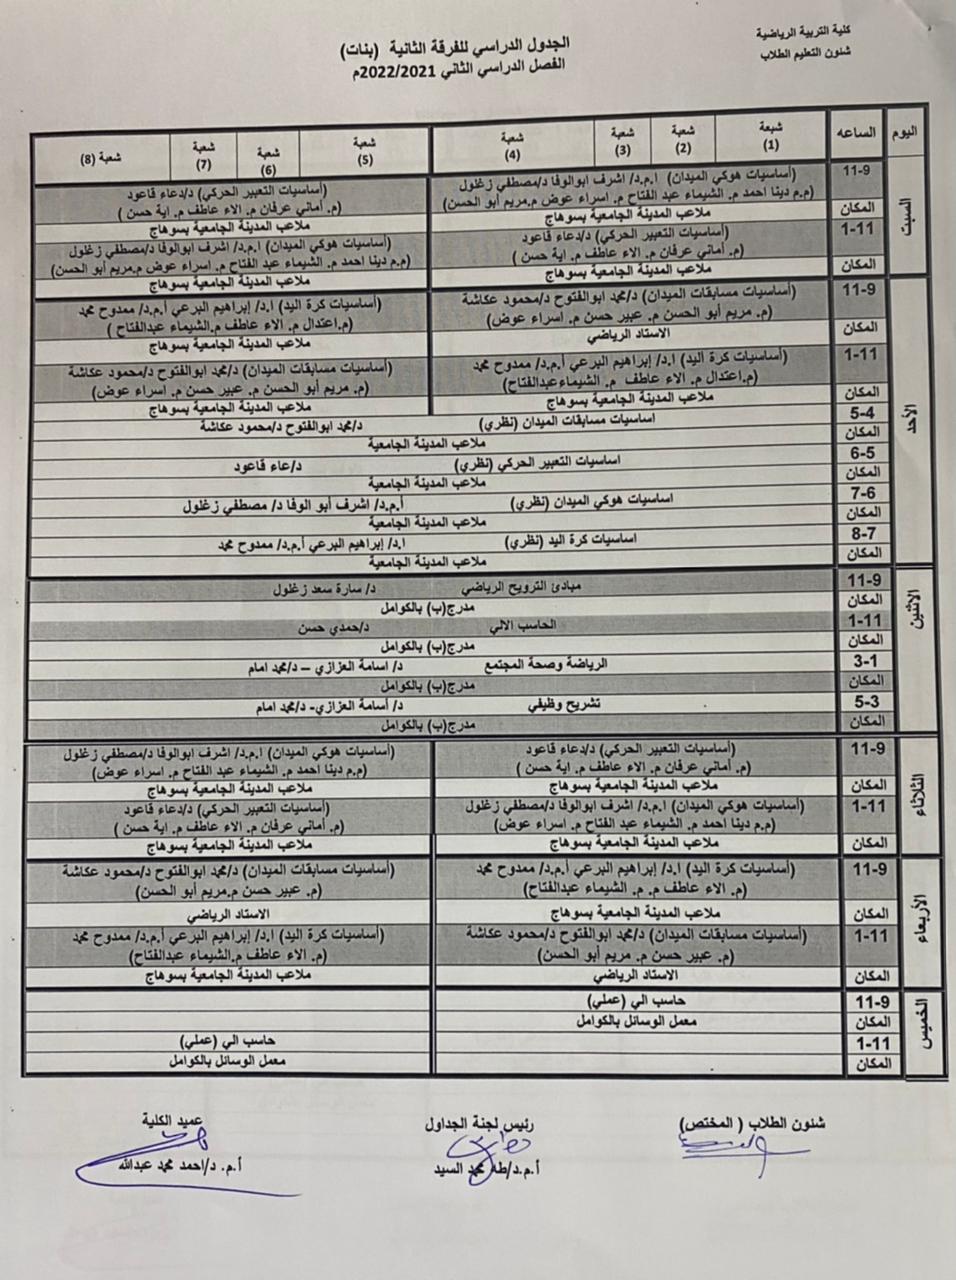 كلية التربية الرياضية
شئون التعليم الطلاب
الجدول الدراسي للفرقة الثانية (بنات)
الفصل الدراسي الثاني 2022/2021م
اليوم
الساعه
شيعة (1)
شعبة (2)
شعبة (3)
شعبة (4)
شعبة (5)
شعبة (6)
شعبة (7)
شعبة (8)
السبت
11-9
(أساسيات هوكي الميدان) ا.م.د/ اشرف ابوالوفا د/مصطفي زغلول
(م.م دينا احمد م. الشيماء عبد الفتاح م. اسراء عوض م.مريم أبو الحسن)
(أساسيات التعبير الحركي) د/دعاء قاعود
(م. أماني عرفان م. الاء عاطف م. اية حسن )
المكان
ملاعب المدينة الجامعية بسوهاج
ملاعب المدينة الجامعية بسوهاج
1-11
(أساسيات التعبير الحركي) د/دعاء قاعود
(م. أماني عرفان م. الاء عاطف م. اية حسن )
(أساسيات هوكي الميدان) ا.م.د/ اشرف ابوالوفا د/مصطفي زغلول
(م.م دينا احمد م. الشيماء عبد الفتاح م. اسراء عوض م.مريم أبو الحسن)
المكان
ملاعب المدينة الجامعية بسوهاج
ملاعب المدينة الجامعية بسوهاج
الأحد
11-9
(أساسيات مسابقات الميدان) د/محمد ابوالفتوح د/محمود عكاشة
(م. مريم أبو الحسن م. عبير حسن م. اسراء عوض)
(أساسيات كرة اليد) ا.د/ إبراهيم البرعي أ.م.د/ ممدوح محمد
(م.اعتدال م. الاء عاطف م.الشيماء عبدالفتاح )
المكان
الاستاد الرياضي
ملاعب المدينة الجامعية بسوهاج
1-11
(أساسيات كرة اليد) ا.د/ إبراهيم البرعي أ.م.د/ ممدوح محمد
(م.اعتدال م. الاء عاطف م. الشيماءعبدالفتاح)
(أساسيات مسابقات الميدان) د/محمد ابوالفتوح د/محمود عكاشة
(م. مريم أبو الحسن م. عبير حسن م. اسراء عوض)
المكان
ملاعب المدينة الجامعية بسوهاج
ملاعب المدينة الجامعية بسوهاج
5-4
اساسيات مسابقات الميدان (نظري) د/محمد ابوالفتوح د/محمود عكاشة
المكان
ملاعب المدينة الجامعية
6-5
اساسيات التعبير الحركي (نظري) د/عاء قاعود
المكان
ملاعب المدينة الجامعية
7-6
اساسيات هوكي الميدان (نظري) أ.م.د/ اشرف أبو الوفا د/ مصطفي زغلول
المكان
ملاعب المدينة الجامعية
8-7
اساسيات كرة اليد (نظري) ا.د/ إبراهيم البرعي أ.م.د/ ممدوح محمد
المكان
ملاعب المدينة الجامعية
الاثنين
11-9
مبادئ الترويح الرياضي د/ سارة سعد زغلول
المكان
مدرج(ب) بالكوامل
1-11
الحاسب الالي د/حمدي حسن
المكان
مدرج(ب) بالكوامل
3-1
الرياضة وصحة المجتمع د/ اسامة العزازي – د/محمد امام
المكان
مدرج(ب) بالكوامل
5-3
تشريح وظيفي د/ أسامة العزازي- د/محمد امام
المكان
مدرج(ب) بالكوامل
الثلاثاء
11-9
(أساسيات التعبير الحركي) د/دعاء قاعود
(م. أماني عرفان م. الاء عاطف م. اية حسن )
(أساسيات هوكي الميدان) ا.م.د/ اشرف ابوالوفا د/مصطفي زغلول
(م.م دينا احمد م. الشيماء عبد الفتاح م. اسراء عوض)
المكان
ملاعب المدينة الجامعية بسوهاج
ملاعب المدينة الجامعية بسوهاج
1-11
(أساسيات هوكي الميدان) ا.م.د/ اشرف ابوالوفا د/مصطفي زغلول
(م.م دينا احمد م. الشيماء عبد الفتاح م. اسراء عوض)
(أساسيات التعبير الحركي) د/دعاء قاعود
(م. أماني عرفان م. الاء عاطف م. اية حسن )
المكان
ملاعب المدينة الجامعية بسوهاج
ملاعب المدينة الجامعية بسوهاج
الأربعاء
11-9
(أساسيات كرة اليد) ا.د/ إبراهيم البرعي أ.م.د/ ممدوح محمد
(م. الاء عاطف م. م. الشيماء عبدالفتاح)
(أساسيات مسابقات الميدان) د/محمد ابوالفتوح د/محمود عكاشة
(م. عبير حسن م.مريم أبو الحسن)
المكان
ملاعب المدينة الجامعية بسوهاج
الاستاد الرياضي
1-11
(أساسيات مسابقات الميدان) د/محمد ابوالفتوح د/محمود عكاشة
(م. عبير حسن م. مريم أبو الحسن)
(أساسيات كرة اليد) ا.د/ إبراهيم البرعي أ.م.د/ ممدوح محمد
(م. الاء عاطف م.الشيماء عبدالفتاح)
المكان
الاستاد الرياضي
ملاعب المدينة الجامعية بسوهاج
الخميس
11-9
حاسب الي (عملي)
المكان
معمل الوسائل بالكوامل
1-11
حاسب الي (عملي)
المكان
معمل الوسائل بالكوامل
شئون الطلاب ( المختص)
رئيس لجنة الجداول
أ.م.د/طه محمد السيد
عميد الكلية
أ.م. د/احمد محمد عبدالله